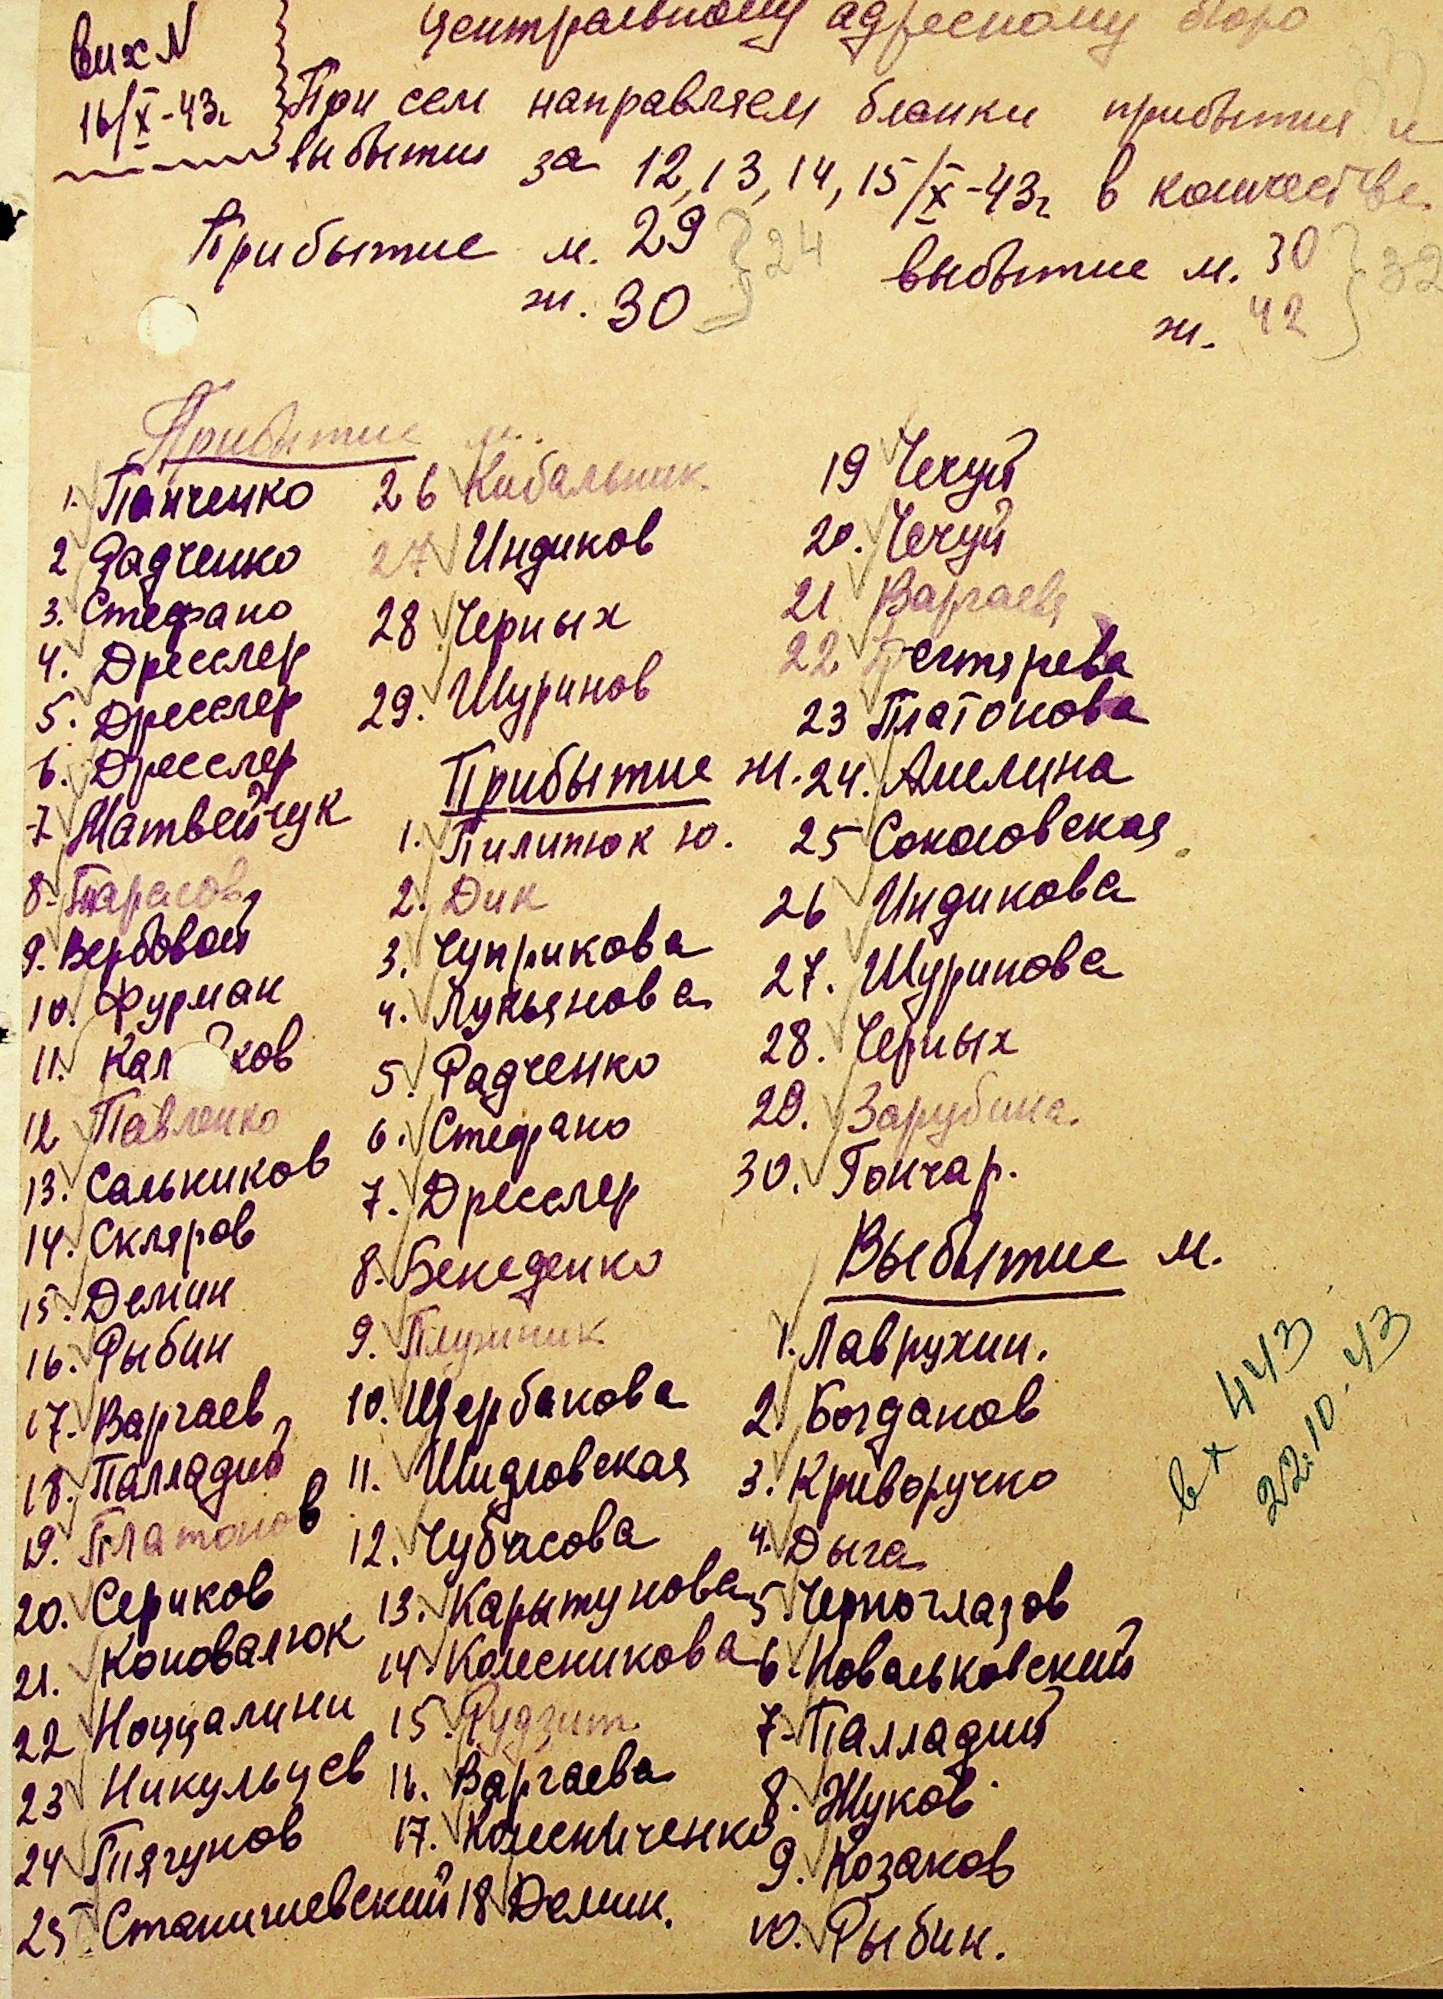 вих N
16/X-43г
Центральному адресному бюро
При сем направляем бланки прибытия и
выбытия за 12, 13, 14, 15/X-43г в количестве.
Прибытие м. 29
ж. 30
24
выбытие м. 30
ж. 42
32
Прибытие м.
1. Панченко
2 Радченко
3. Стефано
4. Дресслер
5. Дресслер
6. Дресслер
7 Матвейчук
8. Тарасов
9. Вербовой
10. Фурман
11. Кал ков
12 Павленко
13. Сальников
14. Скляров
15. Демин
16. Рыбин
17. Варгаев
18. Палладий
19. Платонов
20. Сериков
21. Коновалюк
22 Ноццалини
23 Никульцев
24 Тягунов
25. Станишевский
26 Кибальник.
27 Индиков
28 Черных
29. Шуринов
Прибытие ж.
1. Пилипюк Ю.
2. Дик
3. Чуприкова
4. Лукьянова
5. Радченко
6. Стефано
7. Дресслер
8. Бенеденко
9. Плужник
10. Щербакова
11. Шидловская
12. Чубасова
13. Карытунова
14. Колесникова
15. Рудзит.
16. Варгаева
17. Колесниченко
18 Демин.
19 Чечуй
20. Чечуй
21 Варгаева
22 Дегтярева
23 Платонова
24. Амелина
25 Соколовская
26 Индикова
27. Шуринова
28. Черных
29. Зарубина.
30. Гончар.
Выбытие м.
1. Лаврухин.
2. Богданов
3. Криворучко
4. Дыга
5. Черноглазов
6. Ковальковский
7. Палладий
8. Жуков
9. Козаков
10. Рыбин.
вх 443
22.10.43